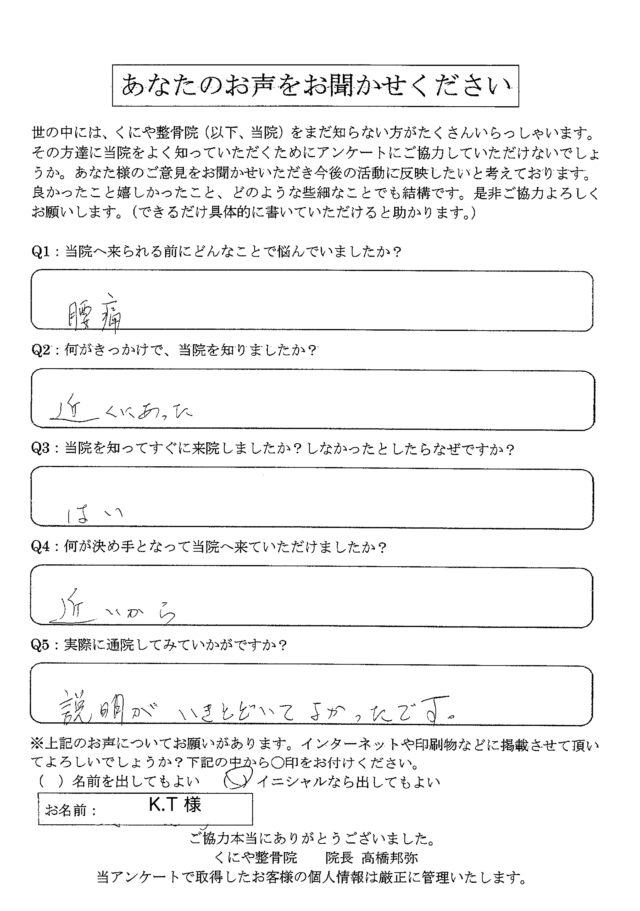 あなたのお声をお聞かせください
世の中には、くにや整骨院（以下、当院）をまだ知らない方がたくさんいらっしゃいます。
その方達に当院をよく知っていただくためにアンケートにご協力していただけないでしょ
うか。あなた様のご意見をお聞かせいただき今後の活動に反映したいと考えております。
良かったこと嬉しかったこと、どのような些細なことでも結構です。是非ご協力よろしく
お願いします。（できるだけ具体的に書いていただけると助かります。）
Q1：当院へ来られる前にどんなことで悩んでいましたか？
腰痛
Q2：何がきっかけで、当院を知りましたか？
近くにあった
Q3：当院を知ってすぐに来院しましたか？しなかったとしたらなぜですか？
はい
Q4：何が決め手となって当院へ来ていただけましたか？
近いから
Q5：実際に通院してみていかがですか？
説明がいきとどいてよかったです。
※上記のお声についてお願いがあります。インターネットや印刷物などに掲載させて頂い
てよろしいでしょうか？下記の中から〇印をお付けください。
（ ）名前を出してもよい （〇）イニシャルなら出してもよい
お名前： K.T 様
ご協力本当にありがとうございました。
くにや整骨院 院長 高橋邦弥
当アンケートで取得したお客様の個人情報は厳正に管理いたします。